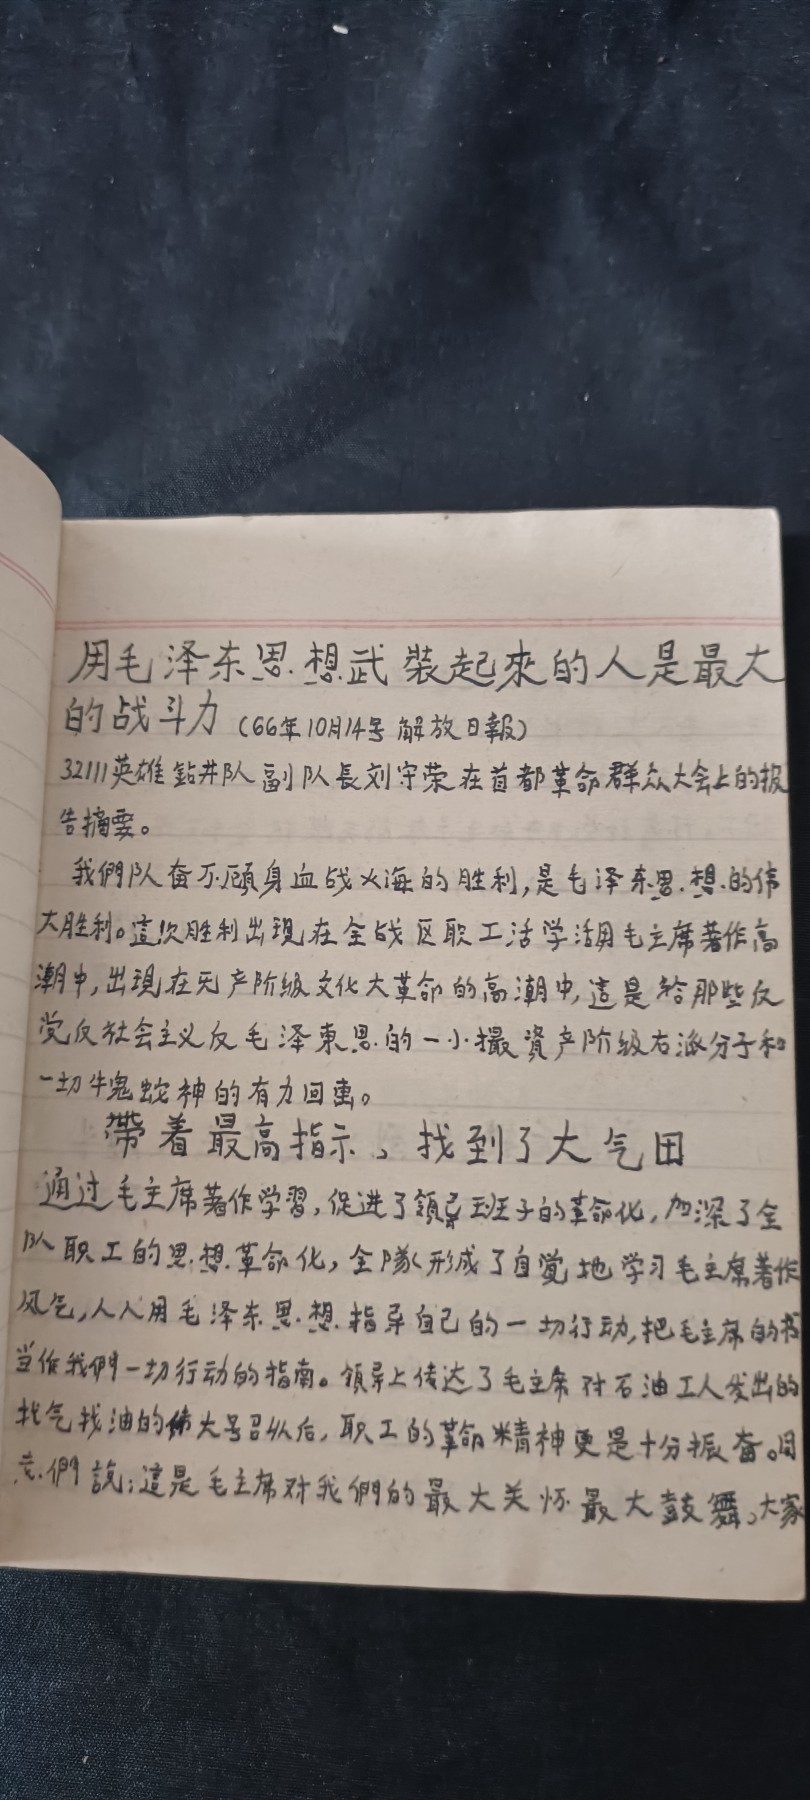 用毛泽东思想武裝起來的人是最大
的战斗力（66年10月14号 解放日報）
32111英雄鉆井队副队長刘守荣在首都革命群众大会上的报
告摘要。
我們队奋不顾身血战火海的胜利，是毛泽东思想的伟
大胜利。這次胜利出現在全战区职工活学活用毛主席著作高
潮中，出現在无产阶级文化大革命的高潮中，這是给那些反
党反社会主义反毛泽東思的一小撮資产阶级右派分子和
一切牛鬼蛇神的有力回击。
帶着最高指示、找到了大气田
通过毛主席著作学習，促进了領导班子的革命化，加深了全
队职工的思想革命化，全隊形成了自覚地学习毛主席著作
风气，人人用毛泽东思想指导自己的一切行动，把毛主席的书
当作我們一切行动的指南。領导上传达了毛主席对石油工人发出的
找气找油的伟大号召从后，职工的革命精神更是十分振奋。同
志們說：這是毛主席对我們的最大关怀最大鼓舞、大家